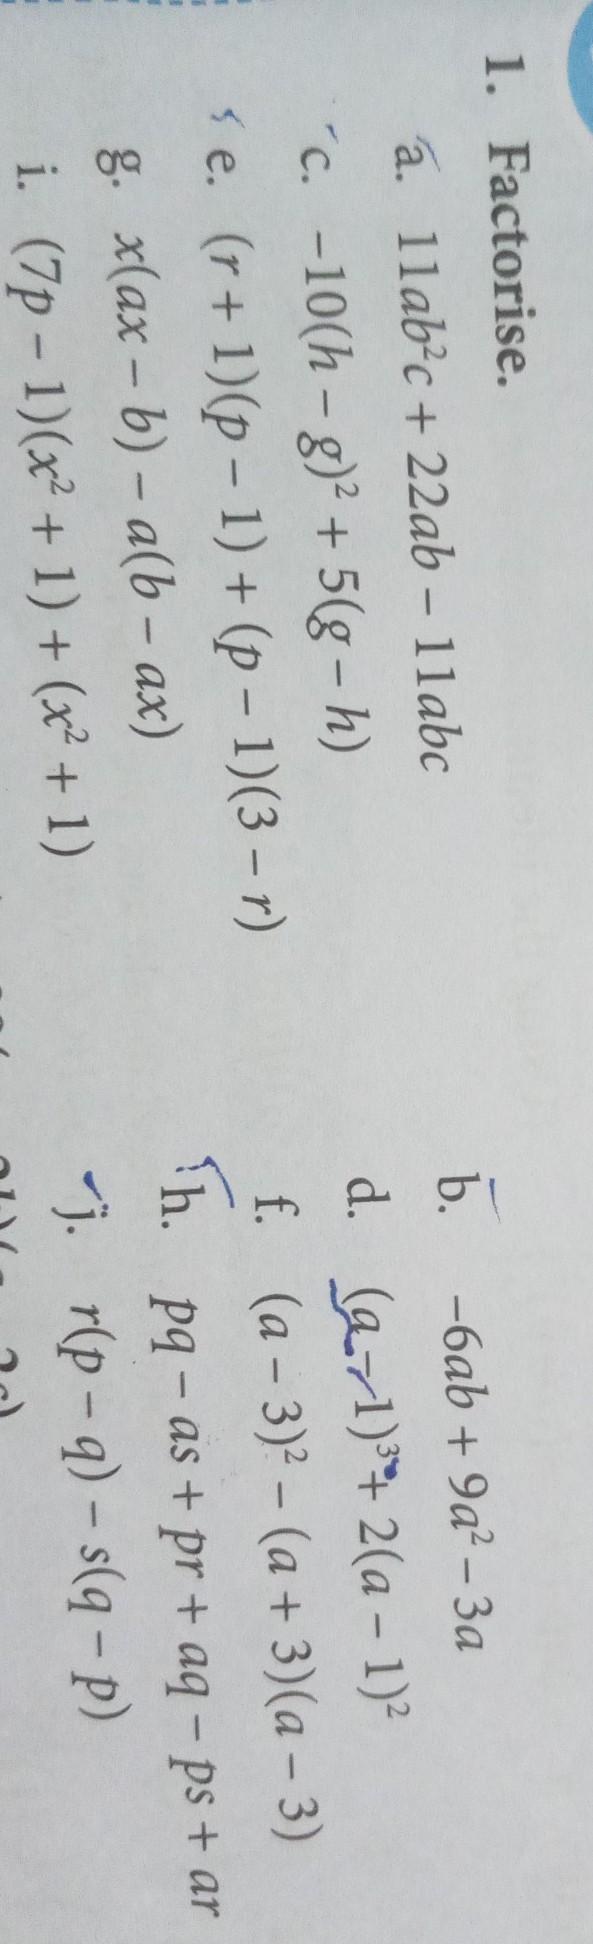 1. Factorise.
a. 11ab²c + 22ab – 11abc b. –6ab + 9a² – 3a
c. –10(h – g)² + 5(g – h) d. (a – 1)³ + 2(a – 1)²
e. (r + 1)(p – 1) + (p – 1)(3 – r) f. (a – 3)² – (a + 3)(a – 3)
g. x(ax – b) – a(b – ax) h. pq – as + pr + aq – ps + ar
i. (7p – 1)(x² + 1) + (x² + 1) j. r(p – q) – s(q – p)